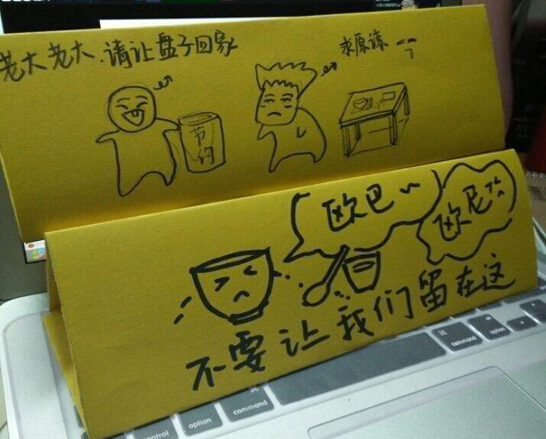 老大老大、请让盘子回家
求原谅
节约
欧巴~
欧尼
不要让我们留在这
control
option
command
command
option